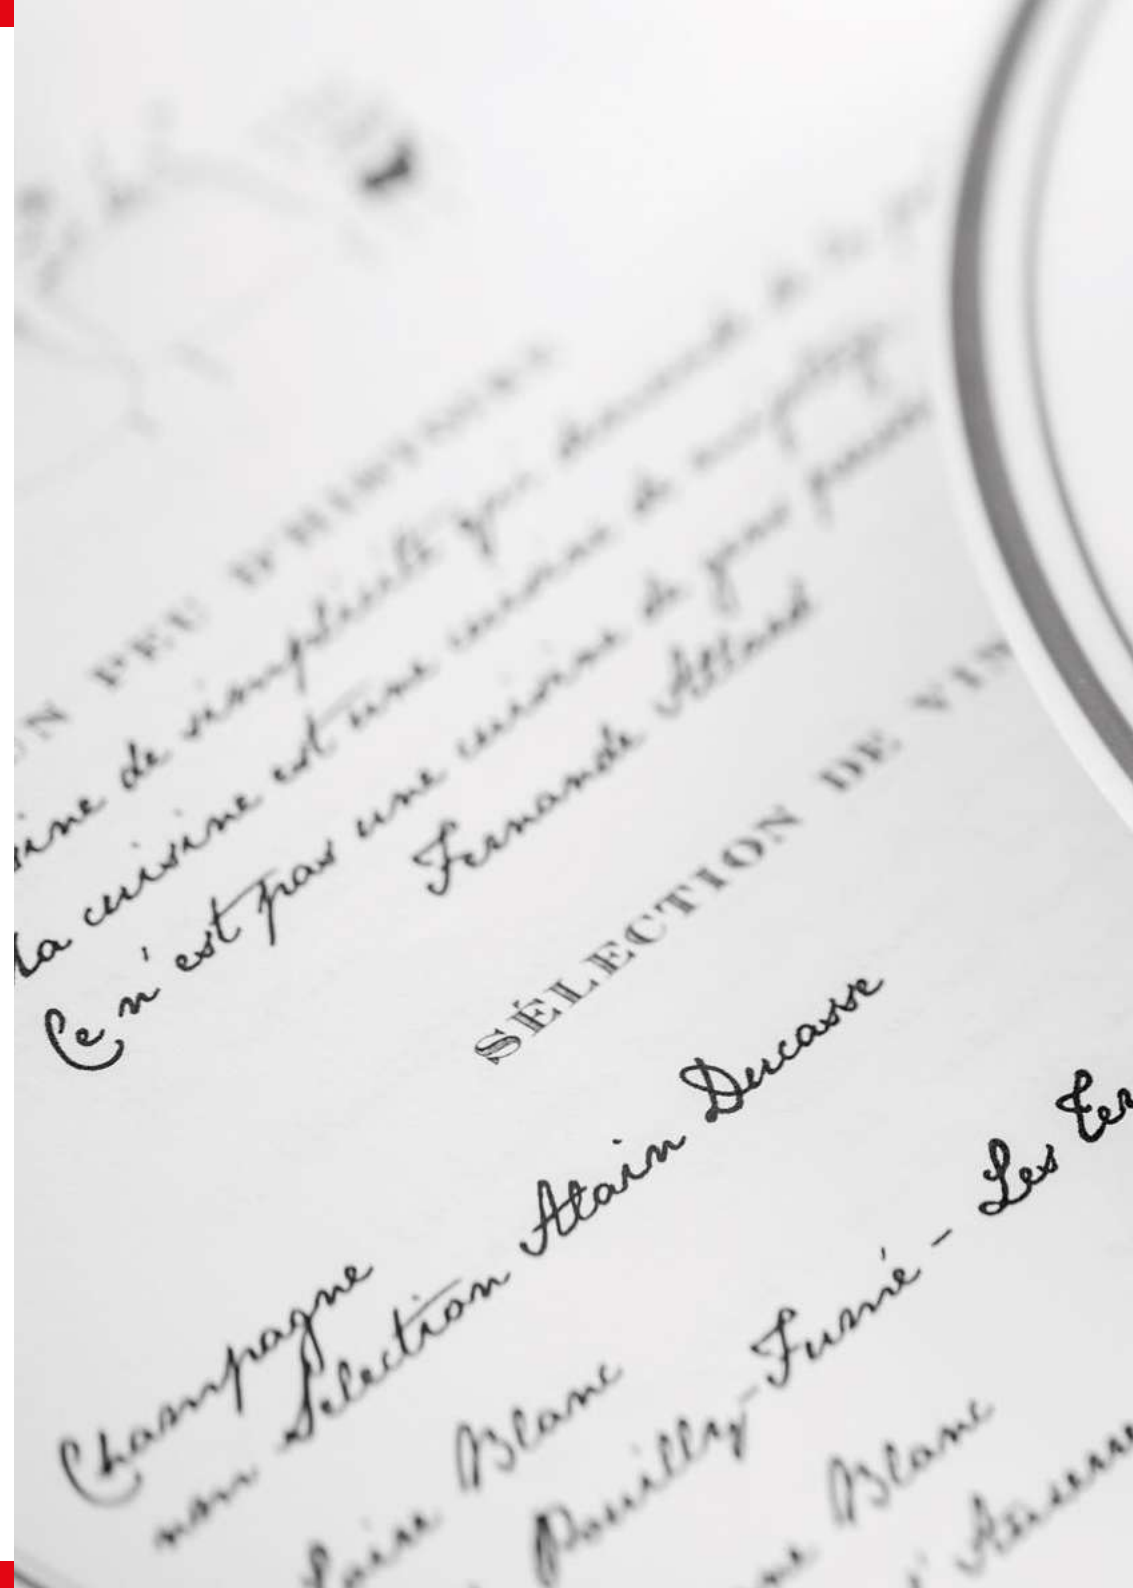 UN PEU D'HISTOIRE
de simplicité qui demande
la cuisine est une cuisine de
Ce n'est pas une cuisine de gens pressés
Fernande Allard
SÉLECTION DE VIN
Champagne
Sélection Alain Ducasse
Loire Blanc
Pouilly-Fumé - Les
Blanc